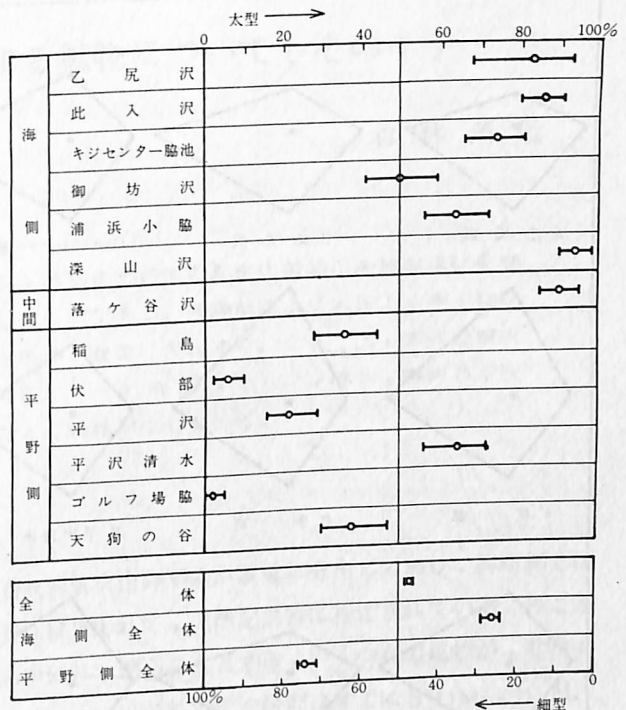 太型
0 20 40 60 80 100%
海側
乙尻沢
此入沢
キジセンター脇池
御坊沢
浦浜小脇
深山沢
中間
落ケ谷沢
平野側
稲島
伏部
平沢
平沢清水
ゴルフ場脇
天狗の谷
全体
海側全体
平野側全体
100% 80 60 40 20 0
細型